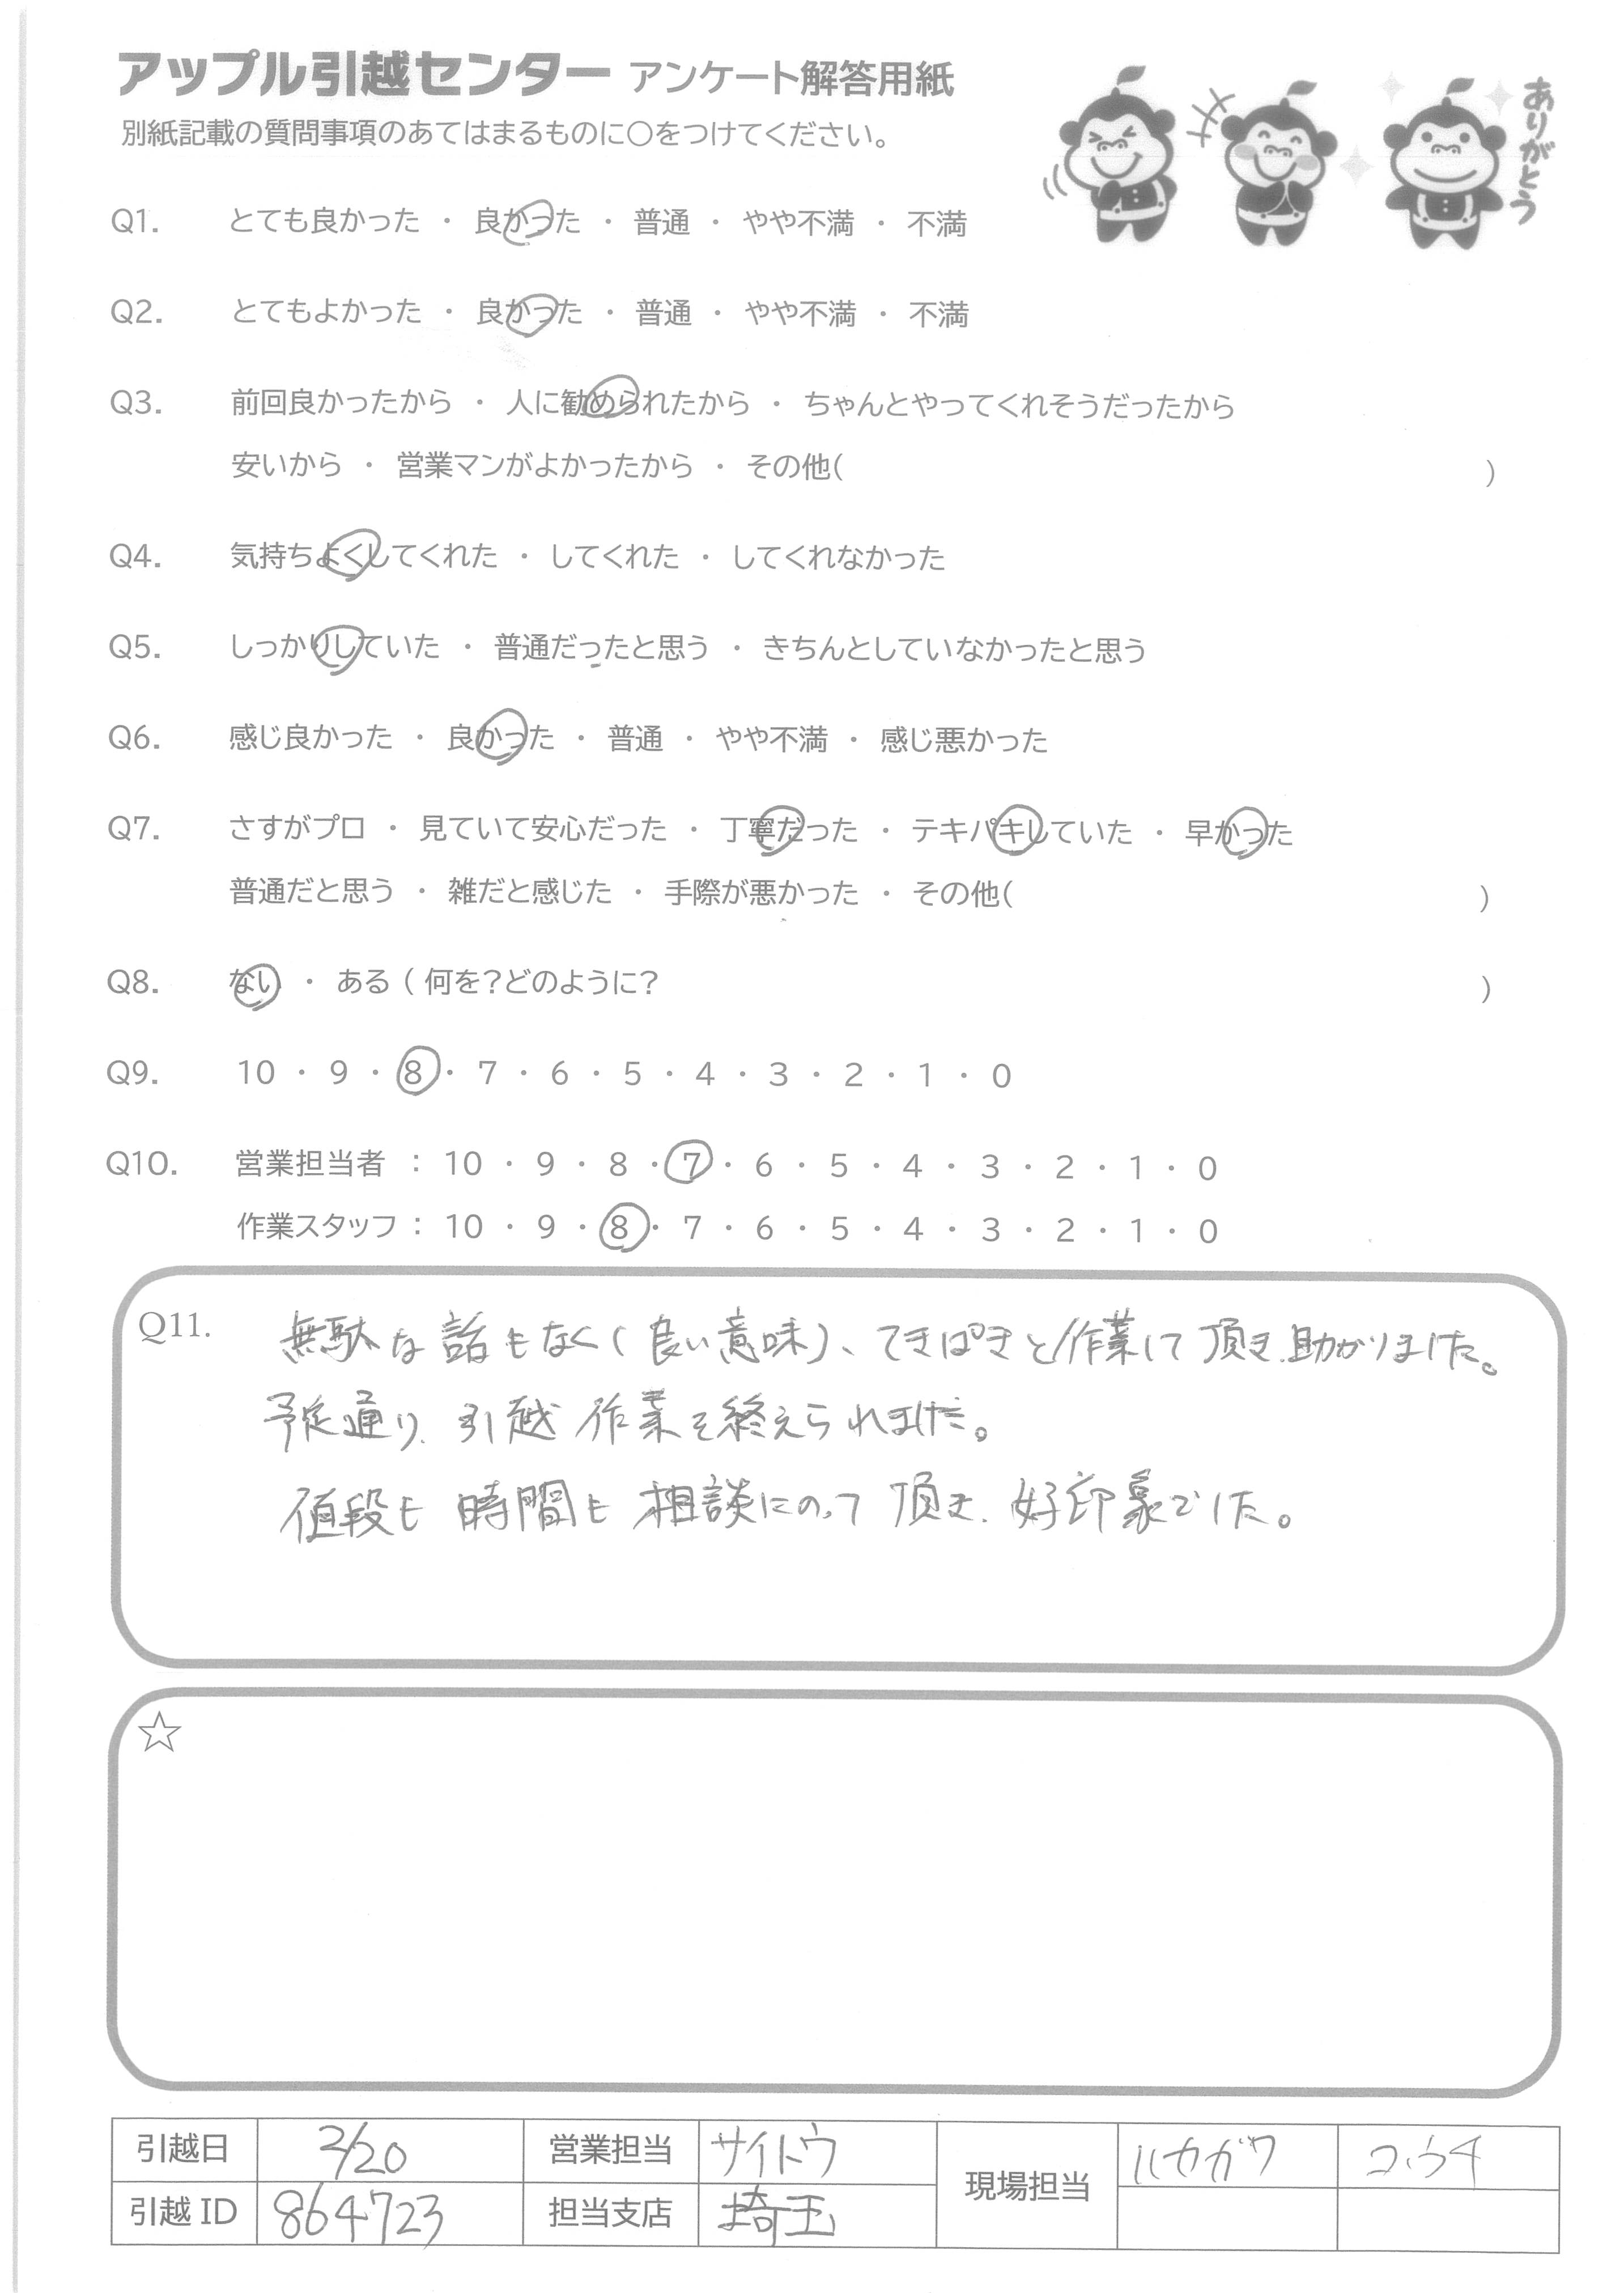 アップル引越センター アンケート解答用紙
別紙記載の質問事項のあてはまるものに○をつけてください。
ありがとう
Q1. とても良かった ・ 良かった ・ 普通 ・ やや不満 ・ 不満
Q2. とてもよかった ・ 良かった ・ 普通 ・ やや不満 ・ 不満
Q3. 前回良かったから ・ 人に勧められたから ・ ちゃんとやってくれそうだったから
安いから ・ 営業マンがよかったから ・ その他( )
Q4. 気持ちよくしてくれた ・ してくれた ・ してくれなかった
Q5. しっかりしていた ・ 普通だったと思う ・ きちんとしていなかったと思う
Q6. 感じ良かった ・ 良かった ・ 普通 ・ やや不満 ・ 感じ悪かった
Q7. さすがプロ ・ 見ていて安心だった ・ 丁寧だった ・ テキパキしていた ・ 早かった
普通だと思う ・ 雑だと感じた ・ 手際が悪かった ・ その他( )
Q8. ない ・ ある ( 何を?どのように? )
Q9. 10 ・ 9 ・ 8 ・ 7 ・ 6 ・ 5 ・ 4 ・ 3 ・ 2 ・ 1 ・ 0
Q10. 営業担当者 : 10 ・ 9 ・ 8 ・ 7 ・ 6 ・ 5 ・ 4 ・ 3 ・ 2 ・ 1 ・ 0
作業スタッフ : 10 ・ 9 ・ 8 ・ 7 ・ 6 ・ 5 ・ 4 ・ 3 ・ 2 ・ 1 ・ 0
Q11. 無駄な話もなく(良い意味)、てきぱきと作業して頂き、助かりました。
予定通り、引越作業を終えられました。
値段も時間も相談にのって頂き、好印象でした。
☆
引越日 2/20 営業担当 サイトウ 現場担当
引越 ID 864723 担当支店 埼玉